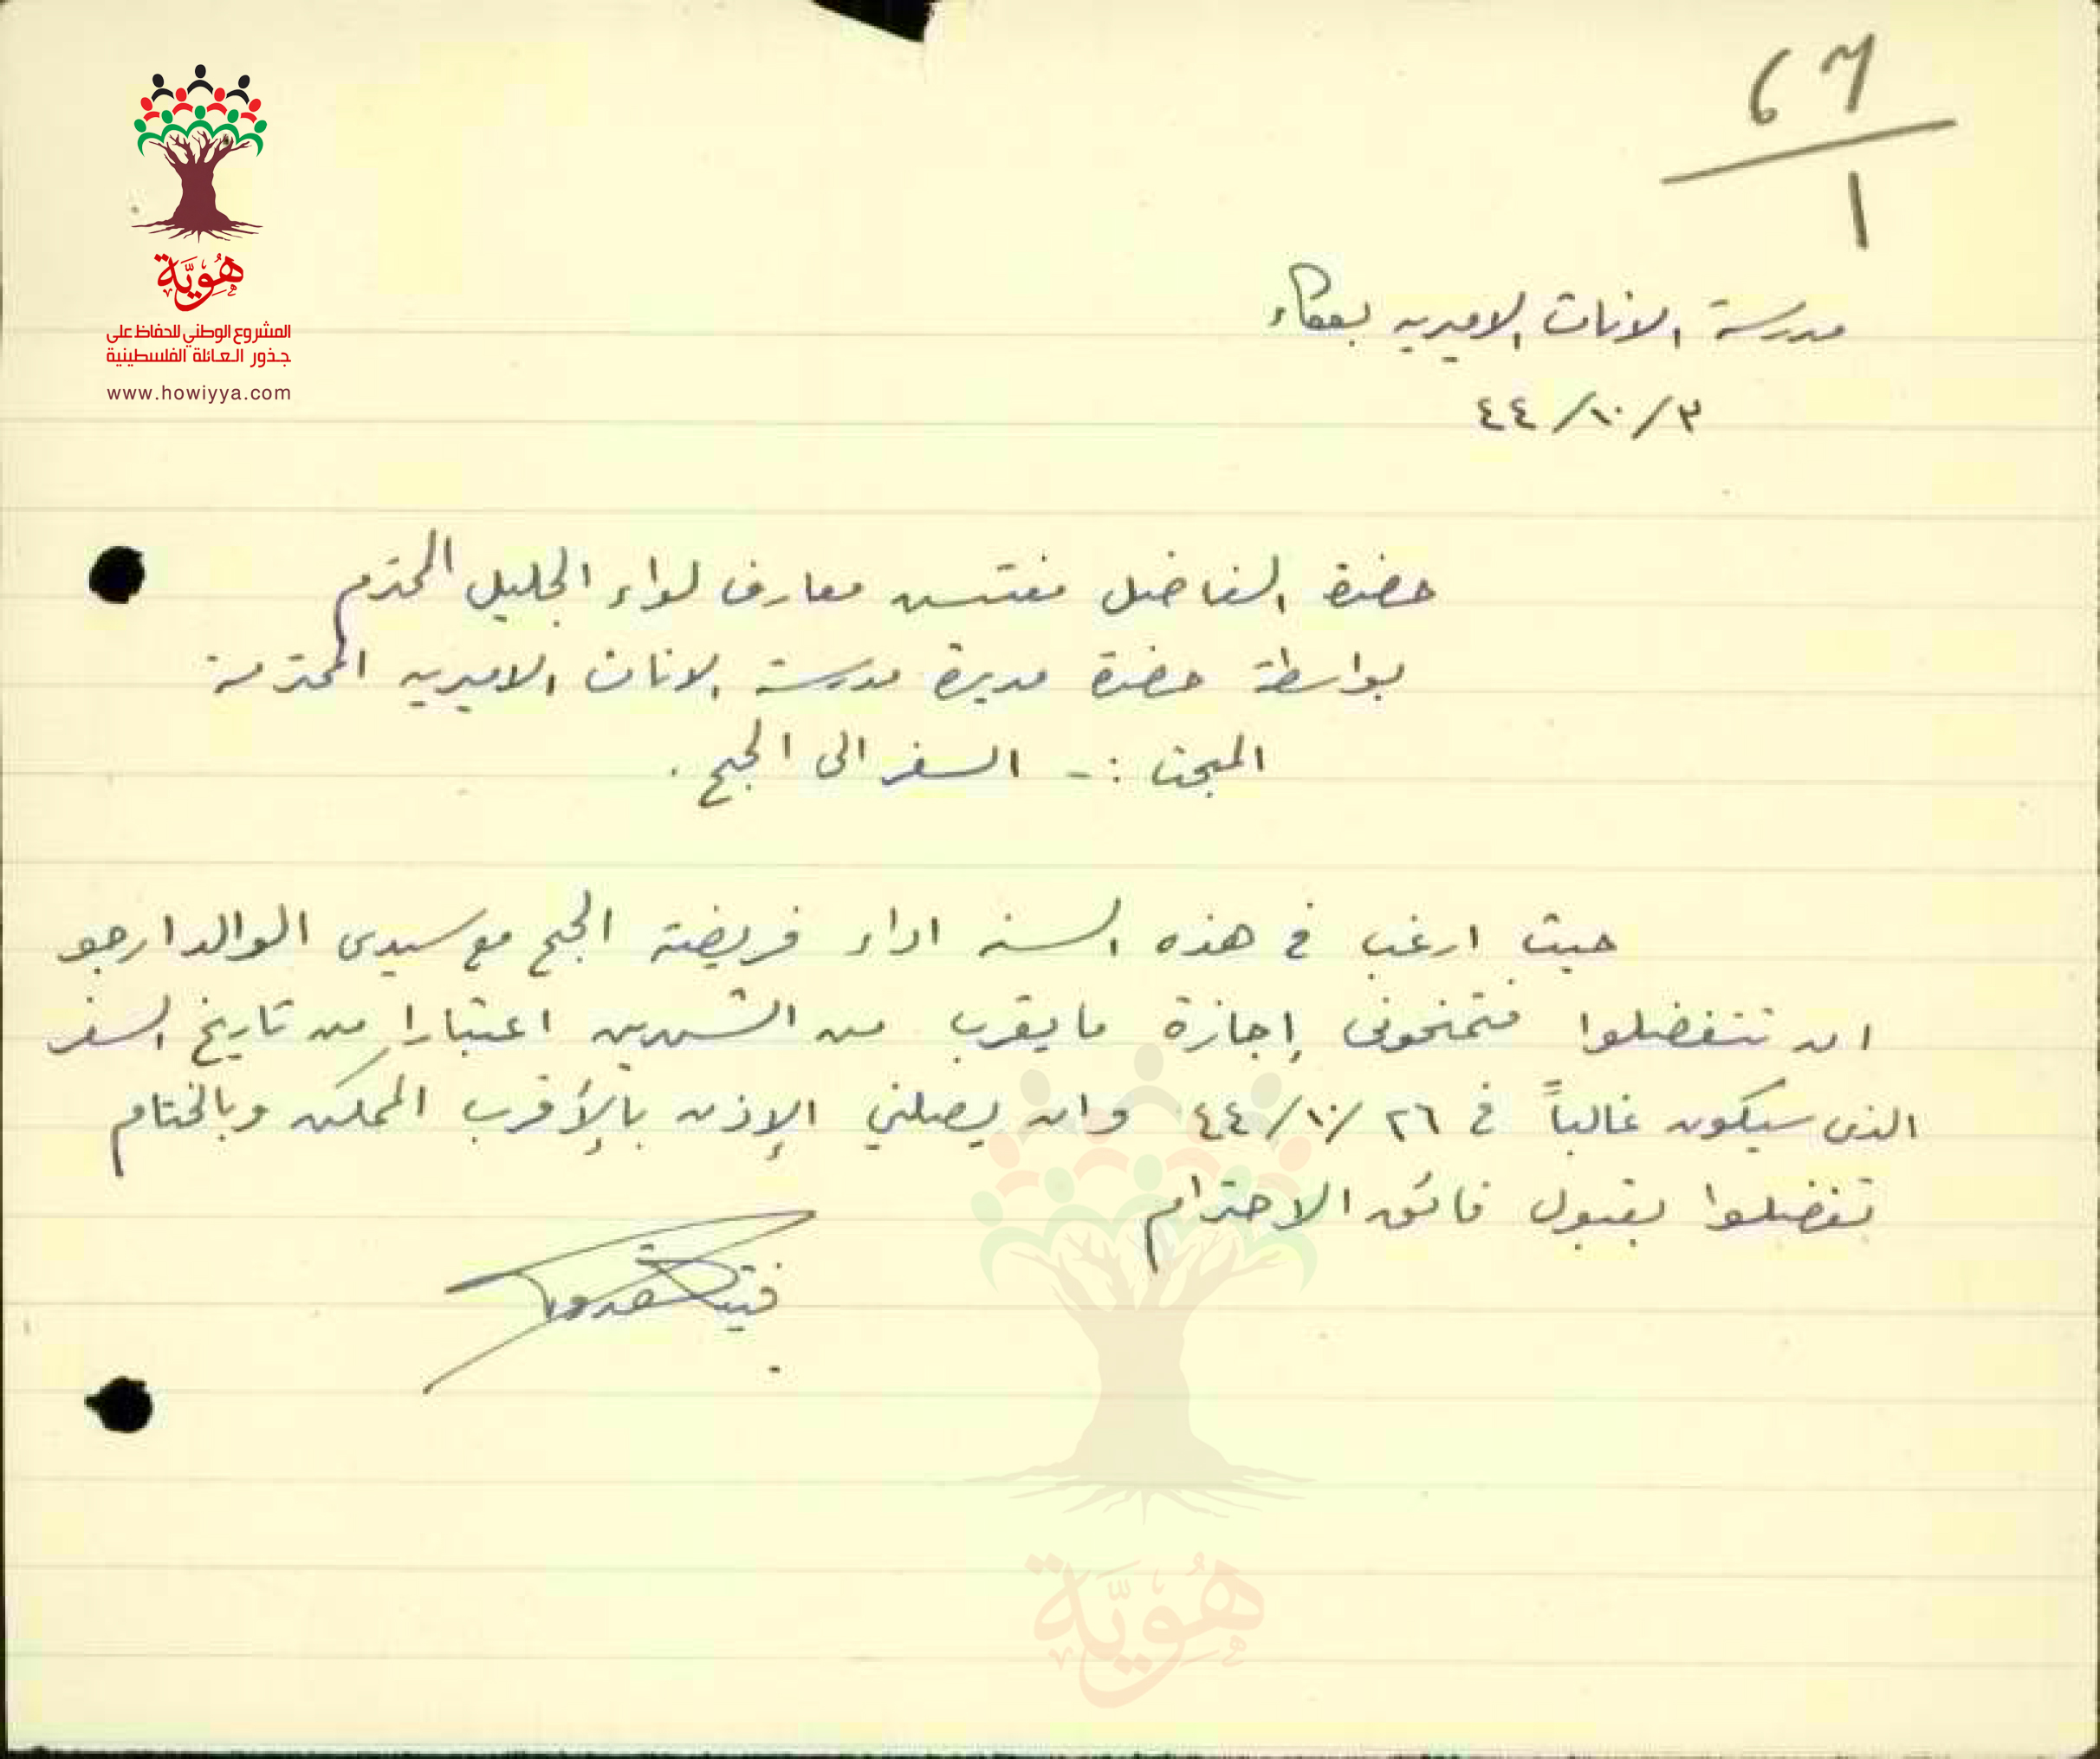 هوية
المشروع الوطني للحفاظ على
جذور العائلة الفلسطينية
www.howiyya.com
١
مدرسة الاناث الاميريه بعكاء
٤٤/١٠/٣
حضرة الفاضل مفتش معارف لواء الجليل المحترم
بواسطة حضرة مديرة مدرسة الاناث الاميريه المحترمة
المبحث :- السفر الى الحج.
حيث ارغب في هذه السنه اداء فريضة الحج مع سيدى الوالد ارجو
ان تتفضلوا فتمنحونى إجازة ما يقرب من الشهرين اعتبارا من تاريخ السفر
الذى سيكون غالباً في ٤٤/١٠/٢٦ وان يصلني الإذن بالأقرب الممكن وبالختام
تفضلوا بقبول فائق الاحترام
هوية